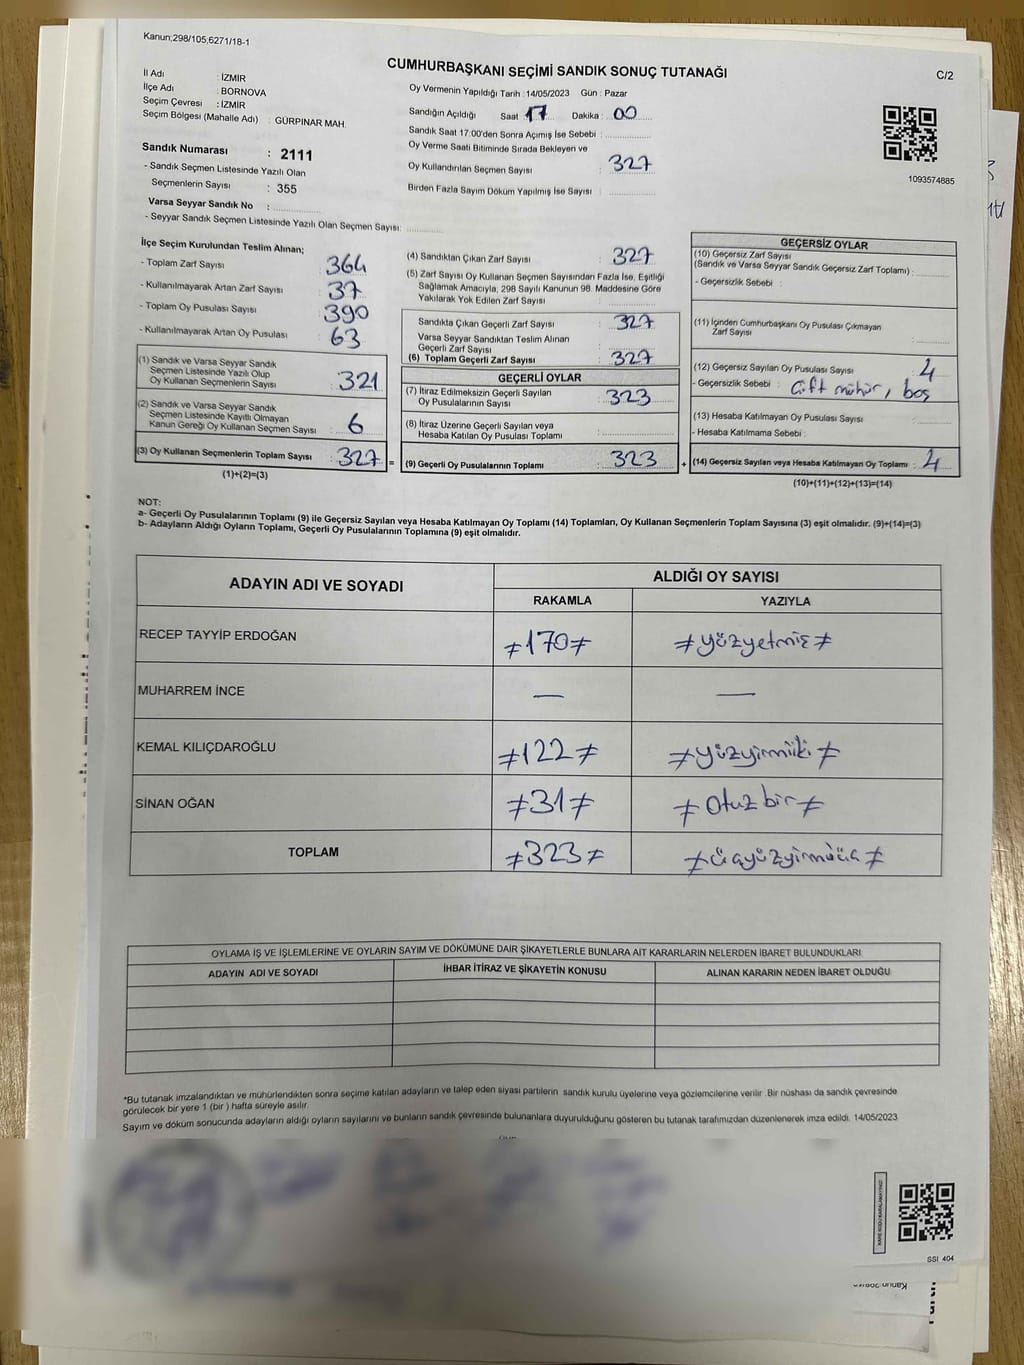 Kanun;298/105;6271/18-1
CUMHURBAŞKANI SEÇİMİ SANDIK SONUÇ TUTANAĞI
C/2
İl Adı : İZMİR
İlçe Adı : BORNOVA
Seçim Çevresi : İZMİR
Seçim Bölgesi (Mahalle Adı) : GÜRPINAR MAH.
Sandık Numarası : 2111
- Sandık Seçmen Listesinde Yazılı Olan
Seçmenlerin Sayısı : 355
Varsa Seyyar Sandık No :
- Seyyar Sandık Seçmen Listesinde Yazılı Olan Seçmen Sayısı:
Oy Vermenin Yapıldığı Tarih : 14/05/2023 Gün : Pazar
Sandığın Açıldığı Saat : 17 Dakika : 00
Sandık Saat 17.00'den Sonra Açımış İse Sebebi :
Oy Verme Saati Bitiminde Sırada Bekleyen ve
Oy Kullandırılan Seçmen Sayısı : 327
Birden Fazla Sayım Döküm Yapılmış İse Sayısı :
1093574885
İlçe Seçim Kurulundan Teslim Alınan;
- Toplam Zarf Sayısı : 364
- Kullanılmayarak Artan Zarf Sayısı : 37
- Toplam Oy Pusulası Sayısı : 390
- Kullanılmayarak Artan Oy Pusulası : 63
(1) Sandık ve Varsa Seyyar Sandık
Seçmen Listesinde Yazılı Olup
Oy Kullanan Seçmenlerin Sayısı : 321
(2) Sandık ve Varsa Seyyar Sandık
Seçmen Listesinde Kayıtlı Olmayan
Kanun Gereği Oy Kullanan Seçmen Sayısı : 6
(3) Oy Kullanan Seçmenlerin Toplam Sayısı : 327 =
(1)+(2)=(3)
(4) Sandıktan Çıkan Zarf Sayısı : 327
(5) Zarf Sayısı Oy Kullanan Seçmen Sayısından Fazla İse, Eşitliği
Sağlamak Amacıyla, 298 Sayılı Kanunun 98. Maddesine Göre
Yakılarak Yok Edilen Zarf Sayısı :
Sandıkta Çıkan Geçerli Zarf Sayısı : 327
Varsa Seyyar Sandıktan Teslim Alınan
Geçerli Zarf Sayısı :
(6) Toplam Geçerli Zarf Sayısı : 327
GEÇERLİ OYLAR
(7) İtiraz Edilmeksizin Geçerli Sayılan
Oy Pusulalarının Sayısı : 323
(8) İtiraz Üzerine Geçerli Sayılan veya
Hesaba Katılan Oy Pusulaları Toplamı :
(9) Geçerli Oy Pusulalarının Toplamı : 323 +
GEÇERSİZ OYLAR
(10) Geçersiz Zarf Sayısı
(Sandık ve Varsa Seyyar Sandık Geçersiz Zarf Toplamı) :
- Geçersizlik Sebebi :
(11) İçinden Cumhurbaşkanı Oy Pusulası Çıkmayan
Zarf Sayısı :
(12) Geçersiz Sayılan Oy Pusulası Sayısı : 4
- Geçersizlik Sebebi : Çift mühür, boş
(13) Hesaba Katılmayan Oy Pusulası Sayısı :
- Hesaba Katılmama Sebebi :
(14) Geçersiz Sayılan veya Hesaba Katılmayan Oy Toplamı : 4
(10)+(11)+(12)+(13)=(14)
NOT:
a- Geçerli Oy Pusulalarının Toplamı (9) ile Geçersiz Sayılan veya Hesaba Katılmayan Oy Toplamı (14) Toplamları, Oy Kullanan Seçmenlerin Toplam Sayısına (3) eşit olmalıdır. (9)+(14)=(3)
b- Adayların Aldığı Oyların Toplamı, Geçerli Oy Pusulalarının Toplamına (9) eşit olmalıdır.
ADAYIN ADI VE SOYADI
ALDIĞI OY SAYISI
RAKAMLA YAZIYLA
RECEP TAYYİP ERDOĞAN ≠170≠ ≠yüzyetmiş≠
MUHARREM İNCE — —
KEMAL KILIÇDAROĞLU ≠122≠ ≠yüzyirmiiki≠
SİNAN OĞAN ≠31≠ ≠Otuzbir≠
TOPLAM ≠323≠ ≠üçyüzyirmiüç≠
OYLAMA İŞ VE İŞLEMLERİNE VE OYLARIN SAYIM VE DÖKÜMÜNE DAİR ŞİKAYETLERLE BUNLARA AİT KARARLARIN NELERDEN İBARET BULUNDUKLARI
ADAYIN ADI VE SOYADI İHBAR İTİRAZ VE ŞİKAYETİN KONUSU ALINAN KARARIN NEDEN İBARET OLDUĞU
*Bu tutanak imzalandıktan ve mühürlendikten sonra seçime katılan adayların ve talep eden siyasi partilerin sandık kurulu üyelerine veya gözlemcilerine verilir. Bir nüshası da sandık çevresinde
görülecek bir yere 1 (bir) hafta süreyle asılır.
Sayım ve döküm sonucunda adayların aldığı oyların sayılarını ve bunların sandık çevresinde bulunanlara duyurulduğunu gösteren bu tutanak tarafımızdan düzenlenerek imza edildi. 14/05/2023
SSI 404